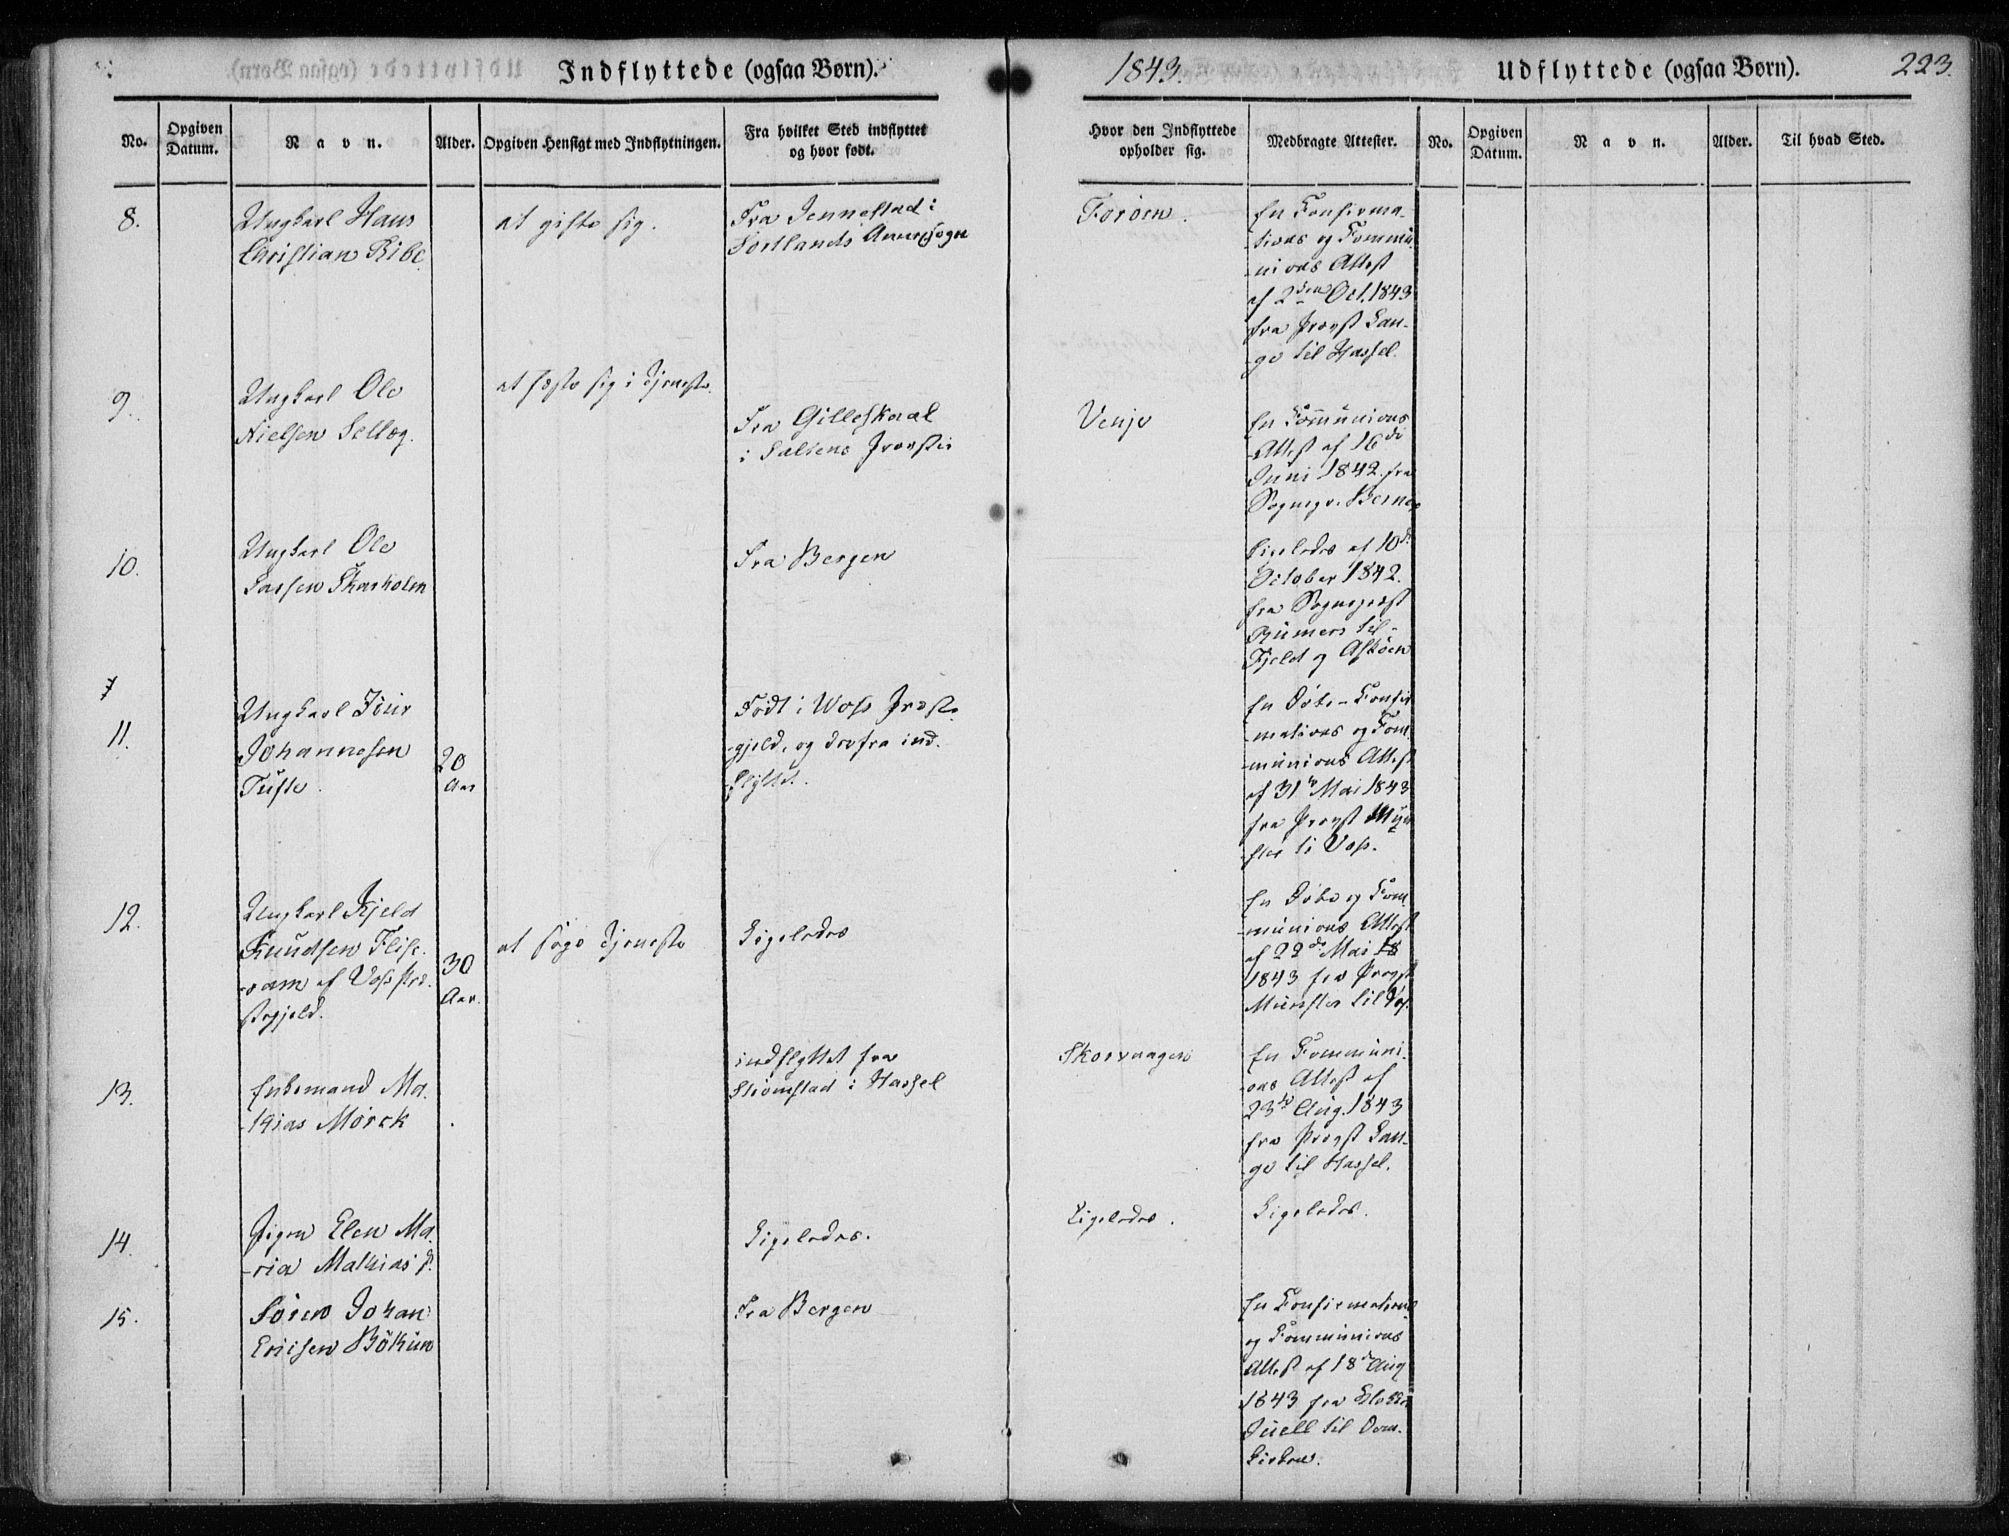 Indflyttede (ogsaa Børn).
1843.
Udflyttede (ogsaa Børn).
223.
No.
Opgiven Datum.
Navn.
Alder.
Opgiven Hensigt med Indflytningen.
Fra hvilket Sted indflyttet
og hvor født.
Hvor den Indflyttede
opholder sig.
Medbragte Attester.
No.
Opgiven Datum.
Navn.
Alder.
Til hvad Sted.
8.
Ungkarl Hans
Christian Ribe
at gifte sig.
Fra Jennestad i
Sortlands Annexsogn
Forøen.
En Confirma-
tions og Commu-
nions Attest
af 2den Oct. 1843
fra Provst Lan-
ge til Hassel.
9.
Ungkarl Ole
Nielsen Selleg.
at fæste sig i Tjeneste.
Fra Gilleskaal
i Saltens Provstie
Venje
En Communions
Attest af 16de
Juni 1842. fra
Sognepr.
10.
Ungkarl Ole
Larsen Skarholm
Fra Bergen
Ligeledes af 10de
October 1842.
fra Sognepræst
til
Fjeld og Askøen
11.
Ungkarl
Johannesen
Tufte.
20
Aar
Født i Woss Præste-
gjeld, og derfra ind-
flyttet.
En Døbe-Confir
mations og Com-
munions Attest
af 31te Mai 1843
fra Provst Mün
ster til Voss.
12.
Ungkarl Kjeld
Knudsen Flise-
ram af Voss Præ-
stegjeld.
30
Aar.
at søge Tjeneste
Ligeledes
En Døbe og Com-
munions Attest
af 22de Mai 18
1843 fra Provst
Münster til Vos.
13.
Enkemand Ma-
thias Mörck
indflyttet fra
Strömstad i Hassel
Skorvaagen
En Communi-
ons Attest af
23de Aug. 1843
fra Provst Lan-
ge til Hassel.
14.
Pigen Elen Ma-
ria Mathias d.
Ligeledes.
Ligeledes.
Ligeledes.
15.
Sören Johan
Ericsen Bökün
Fra Bergen
En Confirmations
og Communions
Attest af 18de Aug
1843 fra Klokker
Juell til Dom-
kirken.